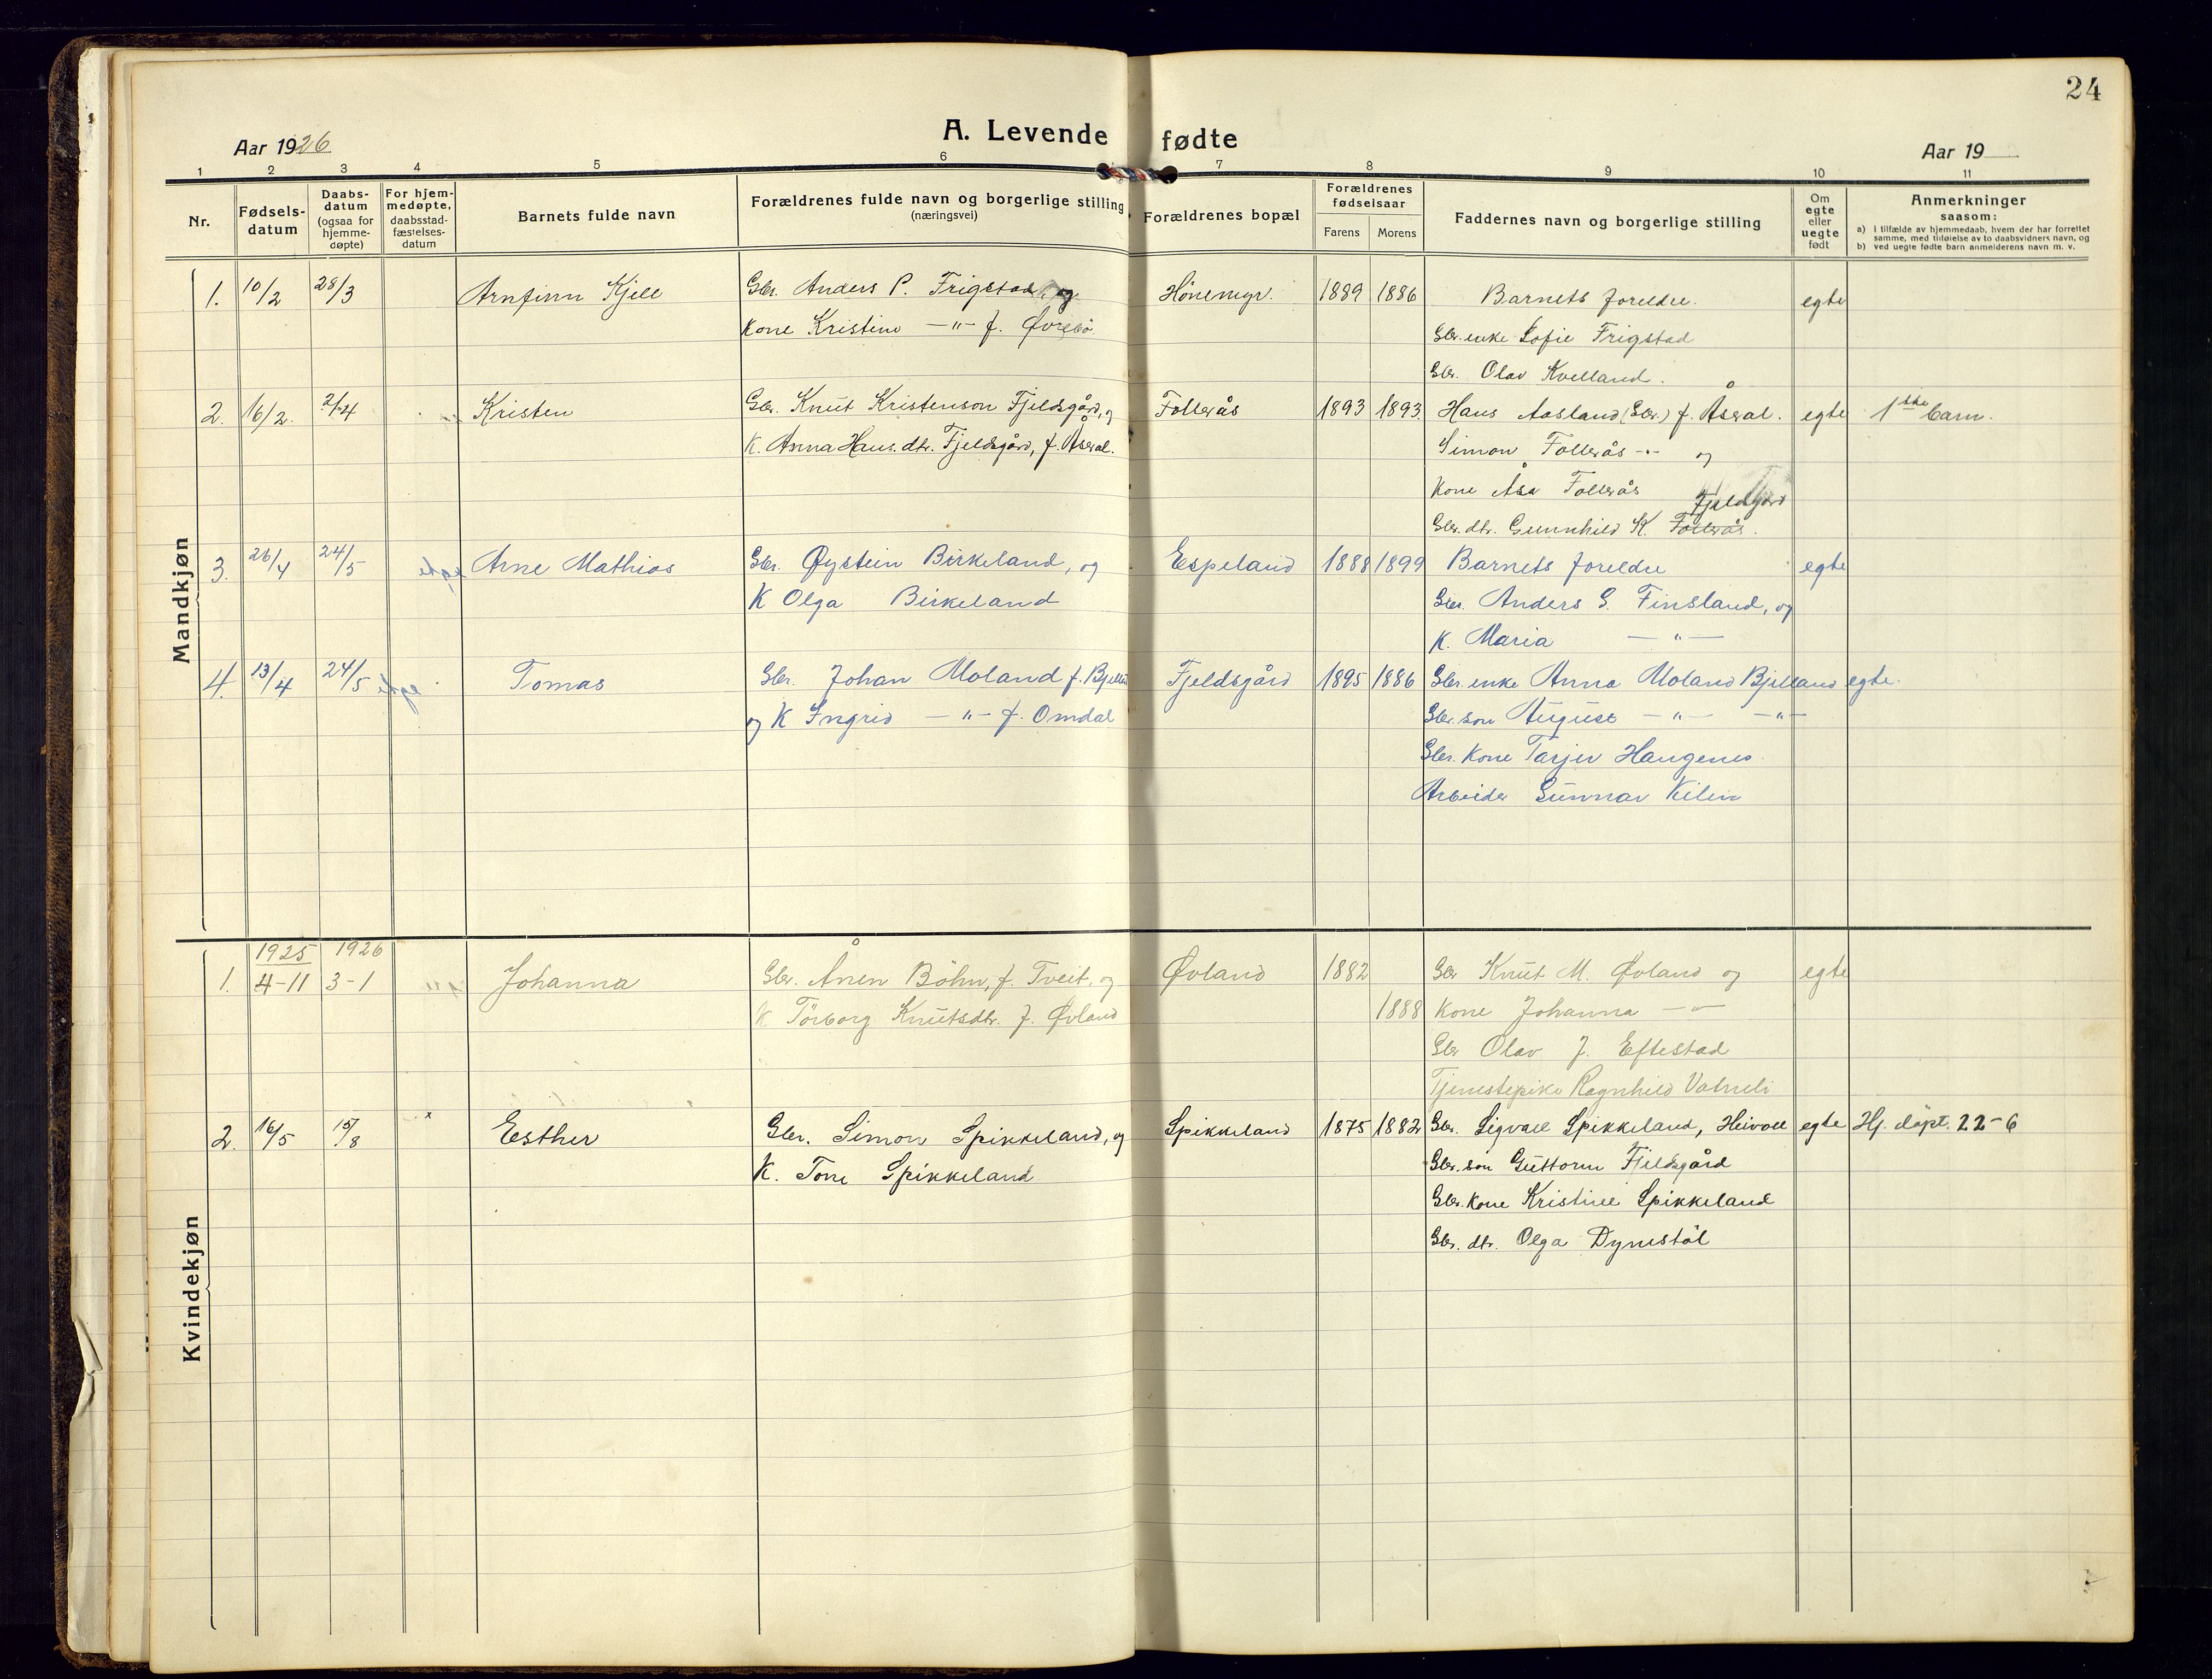 24
A. Levende fødte
Aar 1926
Aar 19
1 2 3 4 5 6 7 8 9 10 11
Nr.
Fødsels-
datum
Daabs-
datum
(ogsaa for
hjemme-
døpte)
For hjem-
medøpte,
daabsstad-
fæstelses-
datum
Barnets fulde navn
Forældrenes fulde navn og borgerlige stilling
(næringsvei)
Forældrenes bopæl
Forældrenes
fødselsaar
Farens Morens
Faddernes navn og borgerlige stilling
Om
egte
eller
uegte
født
Anmerkninger
saasom:
a) i tilfælde av hjemmedaab, hvem der har forrettet
samme, med tilføielse av to daabsvidners navn, og
b) ved uegte fødte barn anmelderens navn m. v.
Mandkjøn
1. 10/2 28/3 Arnfinn Kjell Gbr. Anders P. Frigstad og Hönemyr. 1889 1886 Barnets foreldre. egte
Kone Kristine —"— f. Övrebö Gbr. enke Sofie Frigstad
Gbr. Olav Kvelland.
2. 16/2. 2/4 Kristen Gbr. Knut Kristenson Fjeldsgård, og Follerås 1893 1893. Hans Aasland (Gbr.) f. Åseral. egte 1ste barn.
K. Anna Hans.dtr. Fjeldsgård, f. Åseral. Simon Follerås -"- og
Kone Åsa Follerås
Fjeldsgård
Gbr. dtr. Gunnhild K. Follerås.
3. 26/4 24/5 Arne Mathias Gbr. Øystein Birkeland, og Espeland 1888 1899 Barnets foreldre egte
K Olga Birkeland Gbr. Anders G. Finsland, og
K. Maria —"—
4. 13/4 24/5 Tomas Gbr. Johan Moland f. Fjeldsgård 1895 1886 Gbr. enke Anna Moland Bjelland egte.
og K Ingrid —"— f. Omdal Gbr. son August —"— —"—
Gbr. Kone Tarjer Haugenes
Arbeider Gunnar Kilen
Kvindekjøn
1925 1926
1. 4-11 3-1 Johanna Gbr. Ånen Böhn, f. Tveit, og Øvland 1882 Gbr Knut M. Øvland og egte
K Torborg Knutsdtr. f. Øvland 1888 Kone Johanna —"—
Gbr Olav J. Eftestad
Tjenestepike Ragnhild Vatneli
2. 16/5 15/8 x Esther Gbr. Simon Spikkeland, og Spikkeland 1875 1882 Gbr. Sigvall Spikkeland, Heivoll egte Hj. döpt. 22-6
K. Tone Spikkeland Gbr. son Guttorm Fjeldsgård
Gbr. Kone Kristine Spikkeland
Gbr. dtr. Olga Dynestöl